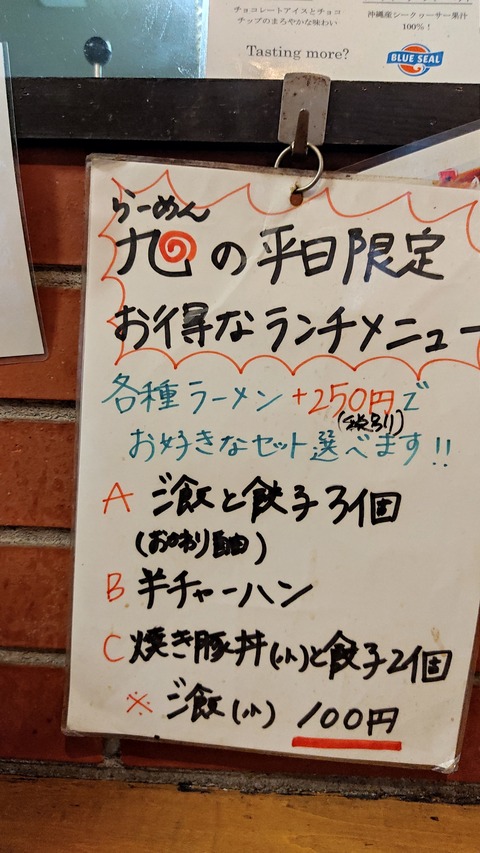 チョコレートアイスとチョコ
チップのまろやかな味わい
沖縄産シークヮーサー果汁
100%!
Tasting more?
BLUE SEAL
らーめん
旭の平日限定
お得なランチメニュー
各種ラーメン+250円で
(税別)
お好きなセット選べます!!
A ご飯と餃子3個
(おかわり自由)
B 半チャーハン
C 焼き豚丼(小)と餃子2個
※ ご飯(小) 100円